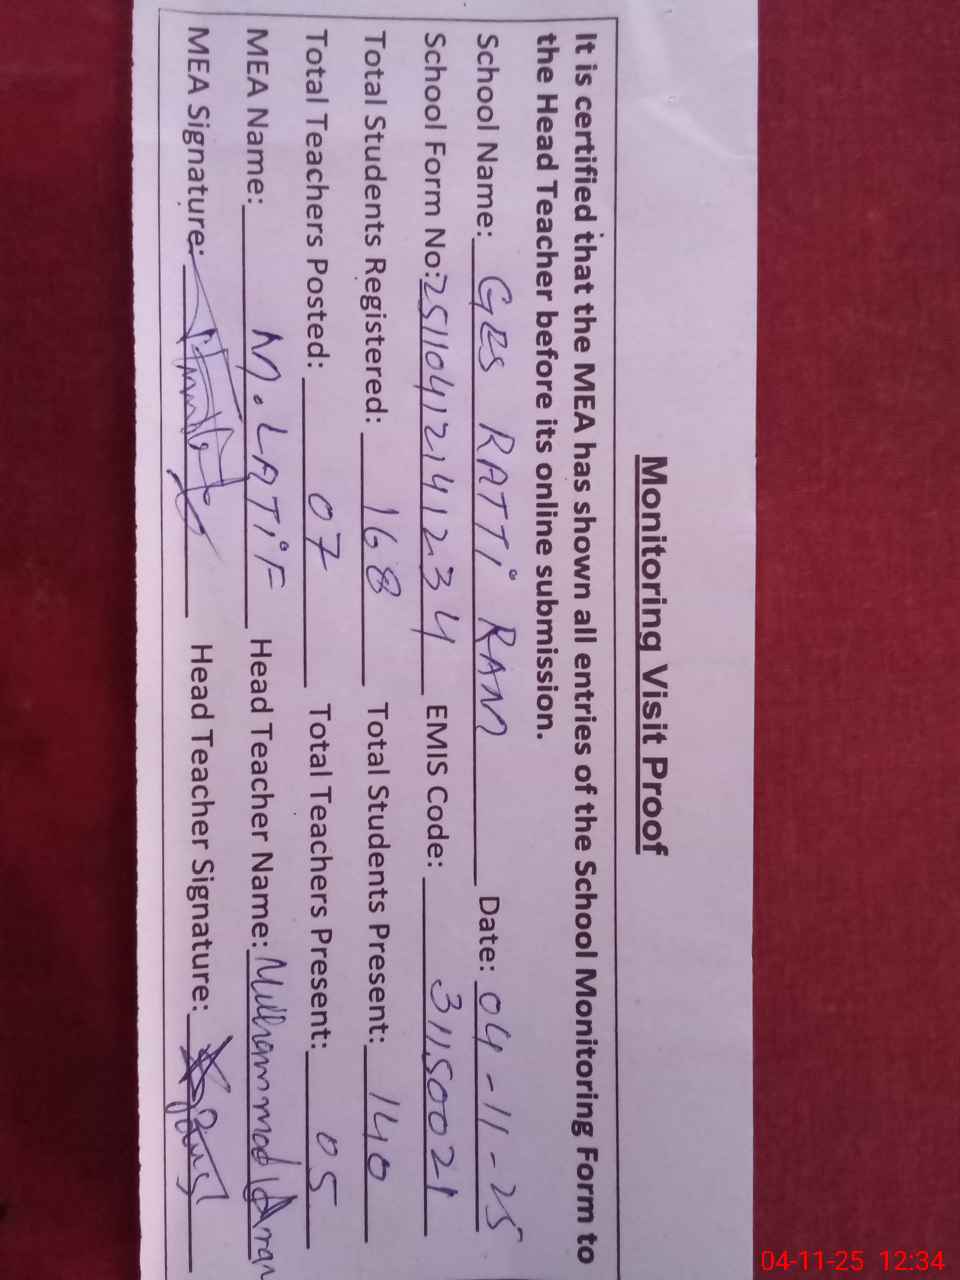 Monitoring Visit Proof
It is certified that the MEA has shown all entries of the School Monitoring Form to
the Head Teacher before its online submission.
School Name: GES RATTI RAM Date: 04-11-25
School Form No: 25110412141234 EMIS Code: 31150021
Total Students Registered: 168 Total Students Present: 140
Total Teachers Posted: 07 Total Teachers Present: 05
MEA Name: M. LATIF Head Teacher Name: Muhammad
MEA Signature: Head Teacher Signature:
04-11-25 12:34